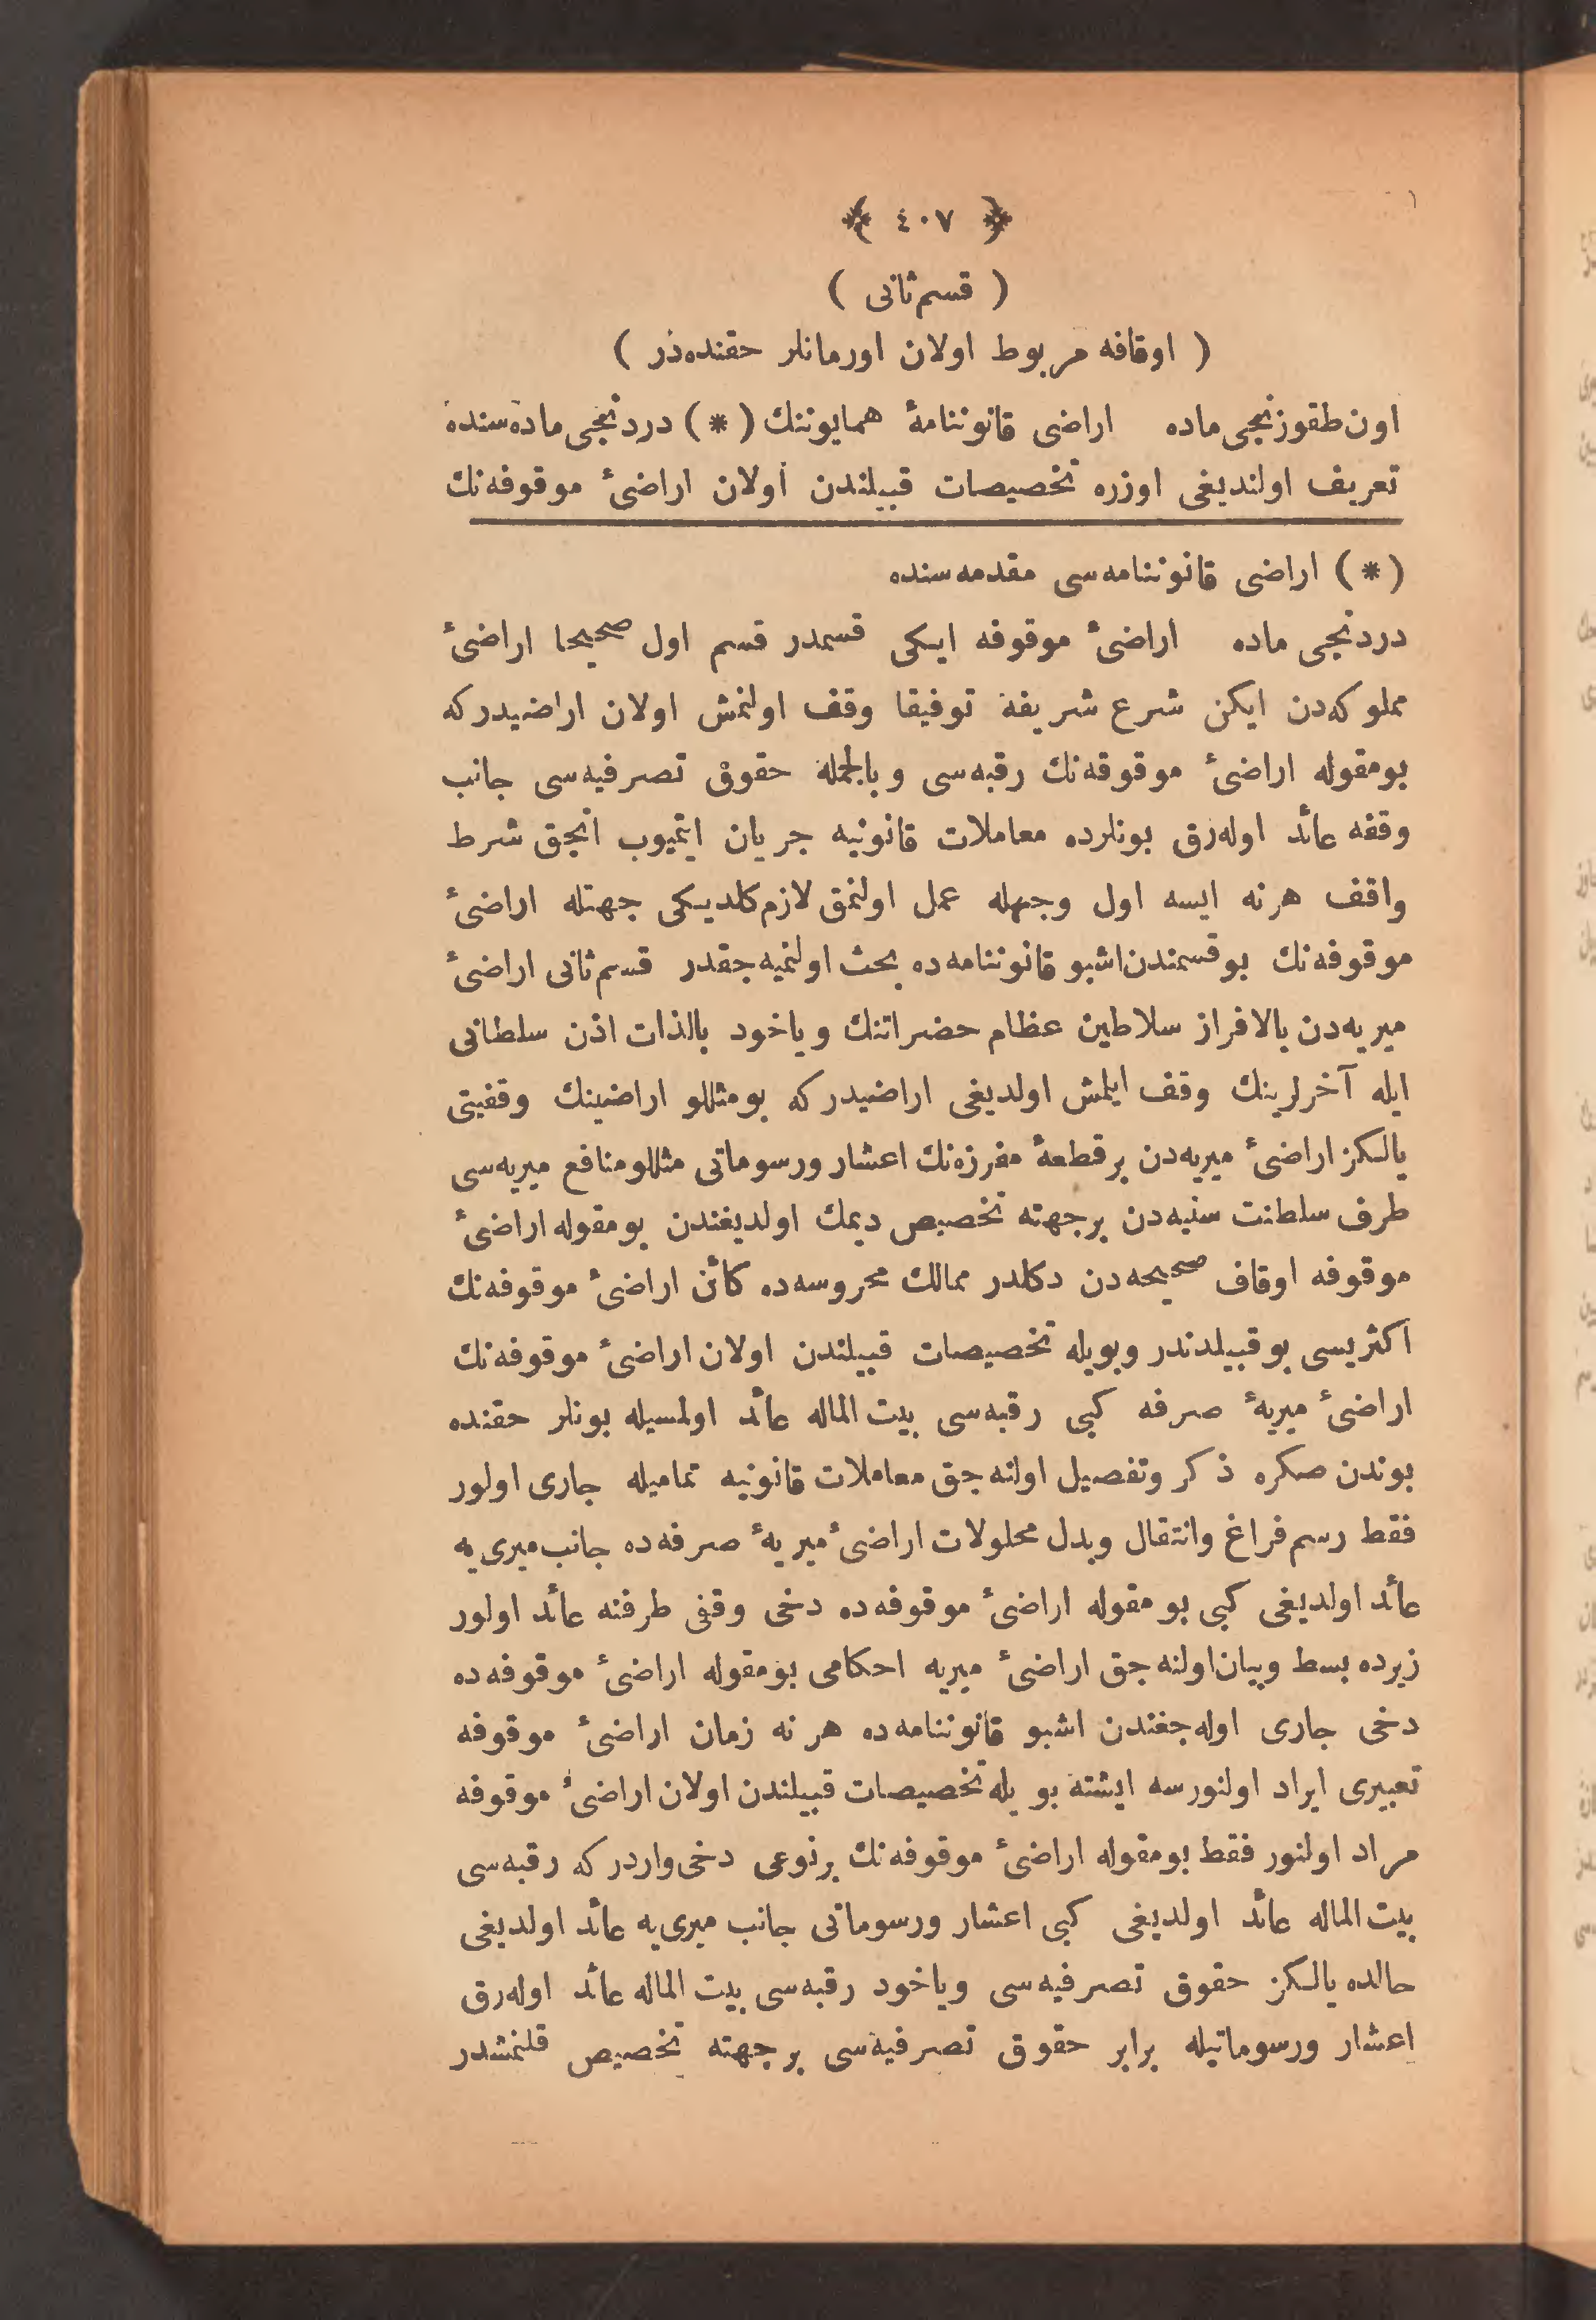 ﴿ ٤٠٧ ﴾
( قسم ثانی )
( اوقافه مربوط اولان اورمانلر حقنده در )
اون طقوزنجی ماده اراضی قانوننامهٔ همایوننك ( * ) دردنجی ماده سنده
تعریف اولندیغی اوزره تخصیصات قبیلندن اولان اراضیٔ موقوفه نك
( * ) اراضی قانوننامه سی مقدمه سنده
دردنجی ماده اراضیٔ موقوفه ایکی قسمدر قسم اول صحیحا اراضیٔ
مملوکه دن ایکن شرع شریفه توفیقا وقف اولنمش اولان اراضیدرکه
بومقوله اراضیٔ موقوفه نك رقبه سی وبالجمله حقوق تصرفیه سی جانب
وقفه عائد اوله رق بونلرده معاملات قانونیه جریان ایتمیوب انجق شرط
واقف هرنه ایسه اول وجهله عمل اولنمق لازم کلدیکی جهتله اراضیٔ
موقوفه نك بوقسمندن اشبو قانوننامه ده بحث اولنمیه جقدر قسم ثانی اراضیٔ
میریه دن بالافراز سلاطین عظام حضراتنك ویاخود بالذات اذن سلطانی
ایله آخرلرینك وقف ایلمش اولدیغی اراضیدرکه بومثللو اراضینك وقفیتی
یالکز اراضیٔ میریه دن برقطعهٔ مفرزه نك اعشار ورسوماتی مثللو منافع میریه سی
طرف سلطنت سنیه دن برجهته تخصیص دیمك اولدیغندن بومقوله اراضیٔ
موقوفه اوقاف صحیحه دن دکلدر ممالك محروسه ده کائن اراضیٔ موقوفه نك
اکثریسی بوقبیلدندر وبویله تخصیصات قبیلندن اولان اراضیٔ موقوفه نك
اراضیٔ میریهٔ صرفه کبی رقبه سی بیت الماله عائد اولمسیله بونلر حقنده
بوندن صکره ذکر وتفصیل اولنه جق معاملات قانونیه تمامیله جاری اولور
فقط رسم فراغ وانتقال وبدل محلولات اراضیٔ میریهٔ صرفه ده جانب میری یه
عائد اولدیغی کبی بو مقوله اراضیٔ موقوفه ده دخی وقفی طرفنه عائد اولور
زیرده بسط وبیان اولنه جق اراضیٔ میریه احکامی بومقوله اراضیٔ موقوفه ده
دخی جاری اوله جغندن اشبو قانوننامه ده هر نه زمان اراضیٔ موقوفه
تعبیری ایراد اولنورسه ایشته بویله تخصیصات قبیلندن اولان اراضیٔ موقوفه
مراد اولنور فقط بومقوله اراضیٔ موقوفه نك برنوعی دخی واردرکه رقبه سی
بیت الماله عائد اولدیغی کبی اعشار ورسوماتی جانب میری یه عائد اولدیغی
حالده یالکز حقوق تصرفیه سی ویاخود رقبه سی بیت الماله عائد اوله رق
اعشار ورسوماتیله برابر حقوق تصرفیه سی برجهته تخصیص قلنمشدر